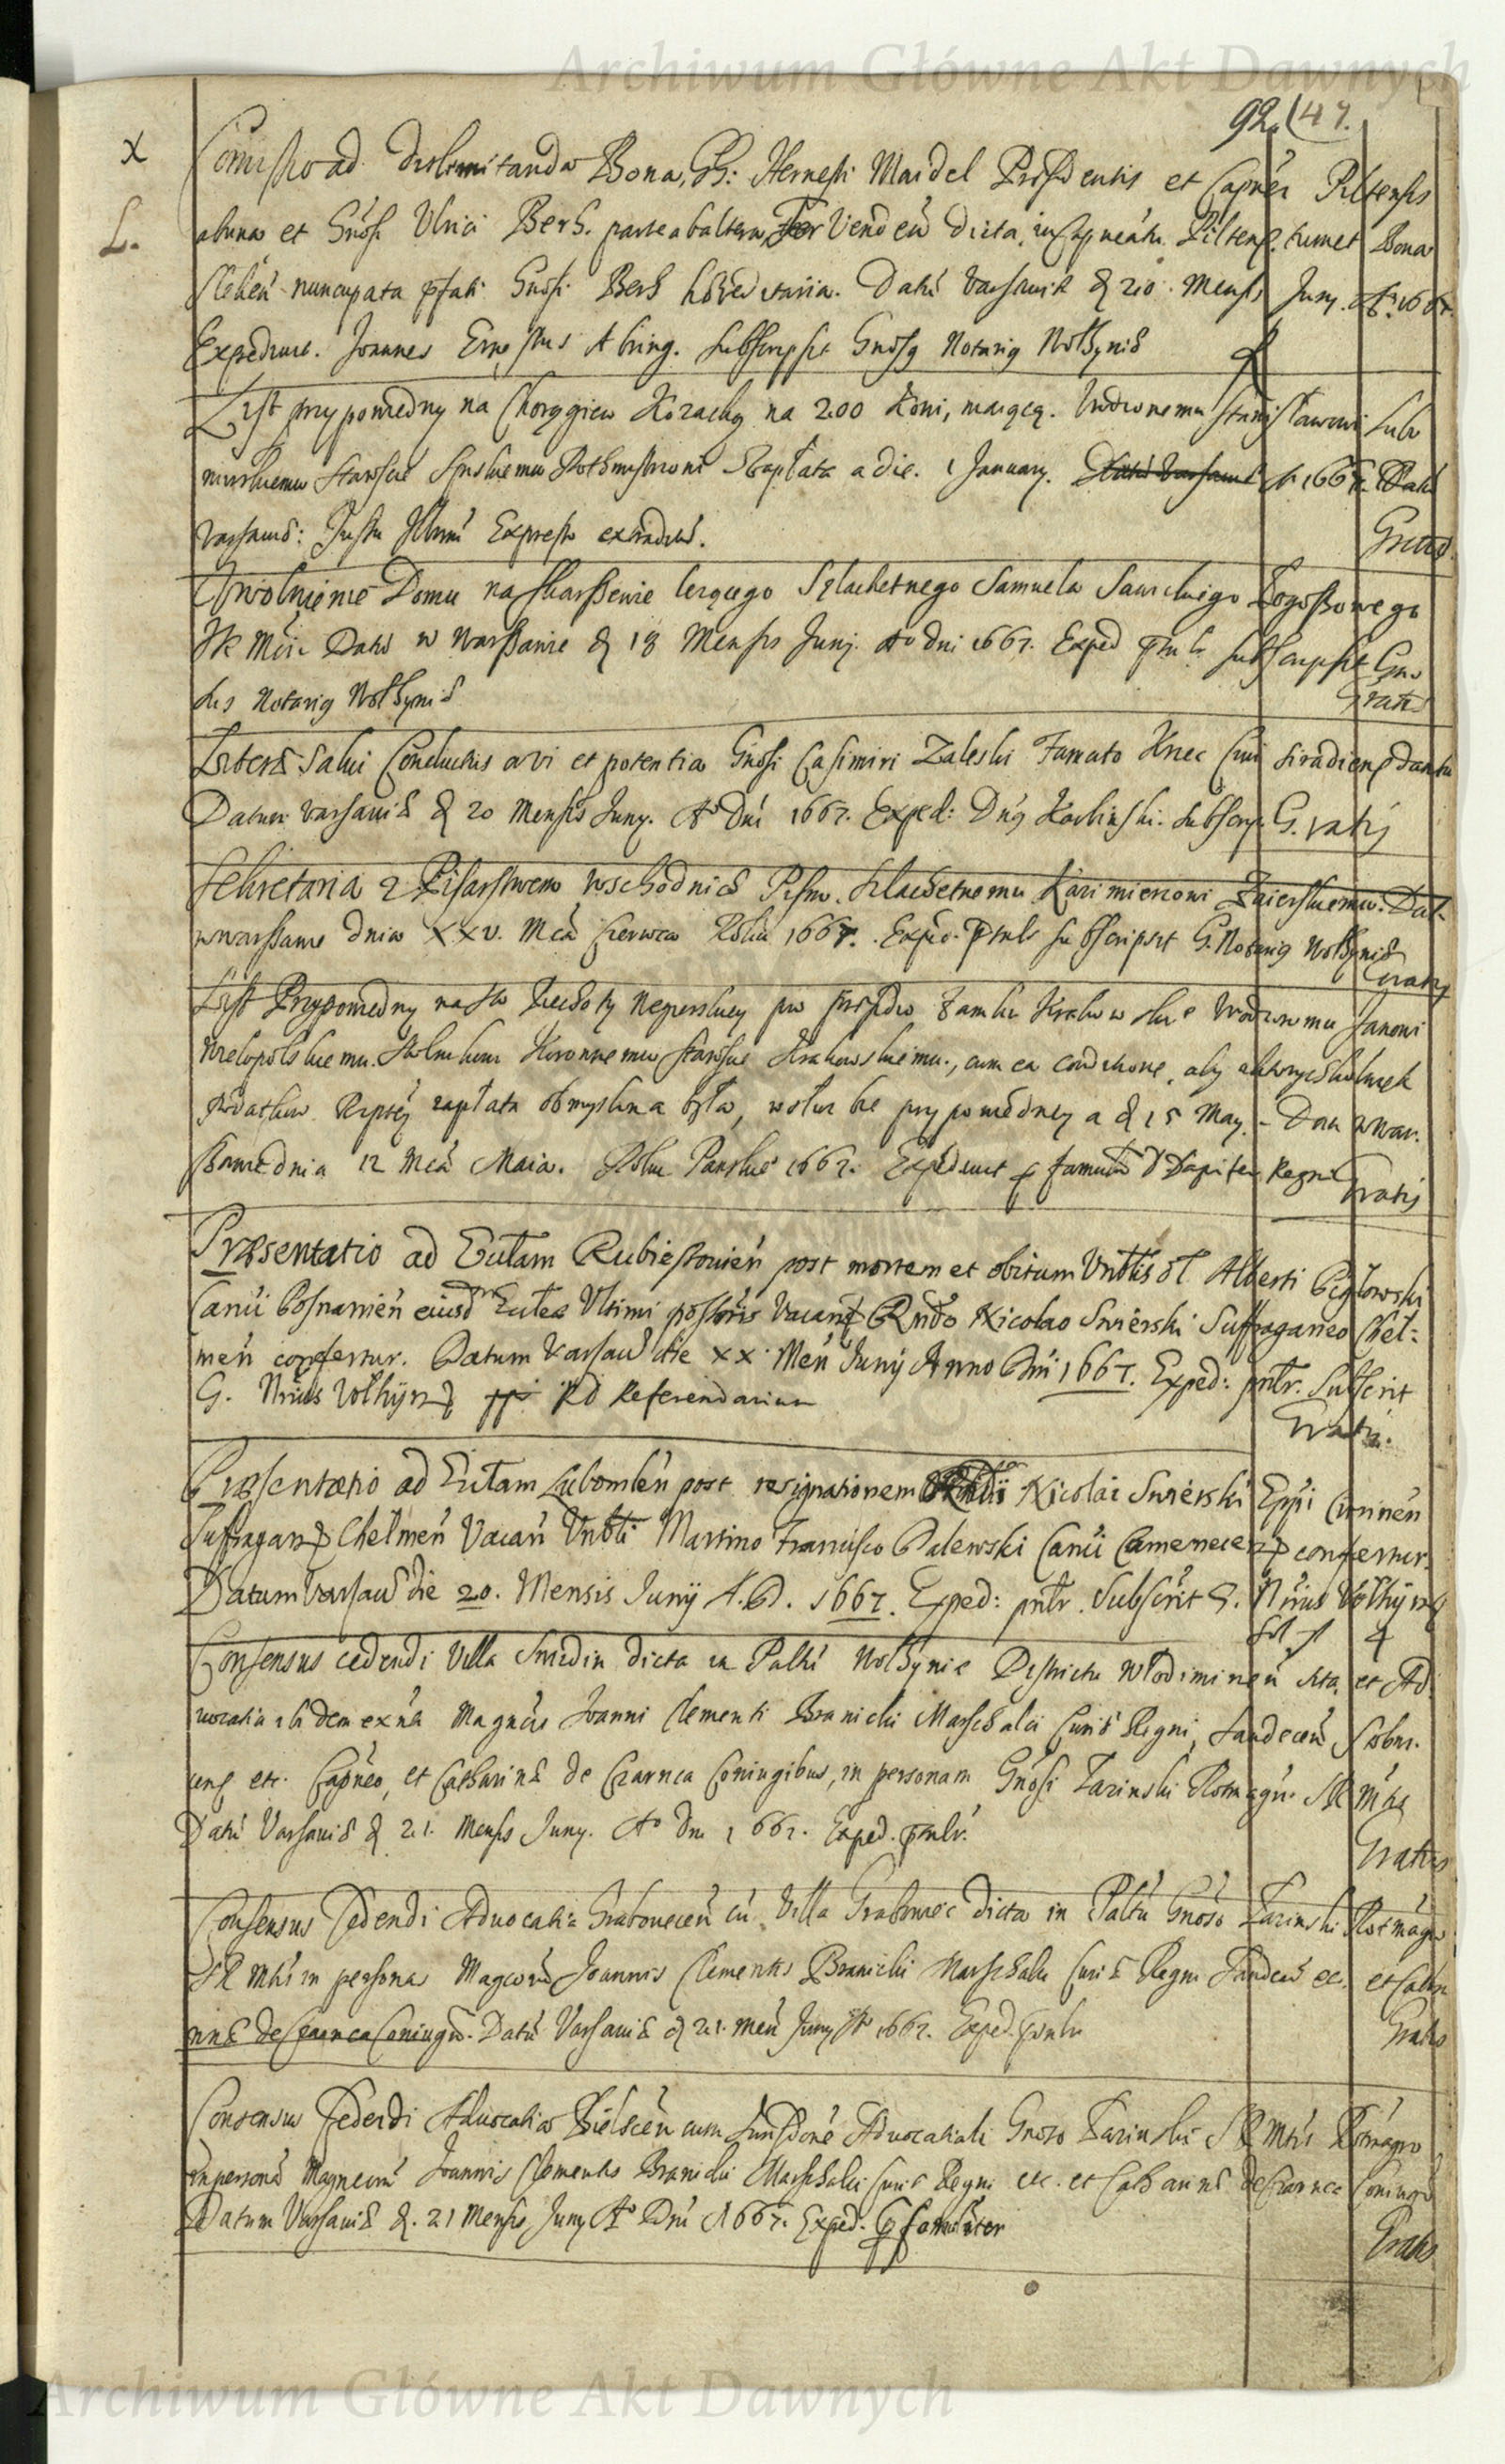 Archiwum Główne Akt Dawnych
92. (47.
x Comissio ad dislimitanda Bona, GG: Hernesti Maidel Præsidentis et Capnei Piltensis
L. ab una et Gnosi Ulrici Berh. parte ab altera, Ter Venden dicta, in Capneatu Piltens. tum et Bona
nuncupata pfati Gnosi Berh hæreditaria. Datu Varsaviæ d 20. Mensis Juny. Ao 1667.
Expedivit. Joannes Ernestus subscripsit Gnosus Notarius Wolhyniæ
List przypowiedny na Chorągiew Kozacką na 200 koni, maiącą. Urodzonemu Stanisławowi Lubo
mirskiemu Staroscie Spiskiemu Rothmistrzowi Zapłata a die. 1 January. A 1667. Datu
Varsaviæ: Jussu Expresso extraditu.
Gratis
Uwolnienie Domu na Skarszewie lezącego Szlachetnego Samuela Sawickiego
JK Mci. Datu w Warszawie d 18 Mensis Junj. Ao dni 1667. Exped pntr subscripsit Gno
sus Notarius Wolhyniæ
Gratis
Literæ Salvi Conductus a vi et potentia Gnosi Casimiri Zaleski Famato Knec Civi Siradiens dantur
Datum Varsaviæ d 20 Mensis Juny. Ao Dni 1667. Exped: Dnus Karlinski. subscrip. Gratis
Sekretaria z Pisarstwem Wschodnich Pism. Szlachetnemu Kazimierzowi Dat.
w Warszawie dnia XXV. Mca Czerwca Roku 1667. Exped. Pntr subscripsit G. Notarius Wolhyniæ
Gratis
List Przypowiedny na Sto Piechoty Węgierskiey pro præsidio Zamku Krakowskie Urodzonemu Janowi
Wielopolskiemu. Stolnikowi Koronnemu Staroscie Krakowskiemu., cum ea conditione, aby z ktorychkolwiek
podatkow Rzptey zapłata obmyslona była, wolue tie przypowiedney a d 15 May. - Dan w War.
szawie dnia 12 Mca Maia. Roku Panskie 1667. Expedivit Dapiferi Regni
Gratis
Præsentatio ad Ecctam Rubieszovien post mortem et obitum Vnblis ol Alberti
Canci Posnanien eiusd Ecctæ Ultimi possoris Vacan Rndo Nicolao Swierski Suffraganeo Chel=
men confertur. Datum Varsav die XX. Men Junij Anno Dni 1667. Exped: pntr. Subscrit
G. Nrius Volhyn Rd Referendarium
Gratis.
Præsentatio ad Ecctam Lubomlen post resignationem Nicolai Swierski Eppi Cininen
Suffragan Chelmen Vacan Vnbli Martino Francisco Palewski Canci Camenecen confertur.
Datum Varsav die 20. Mensis Junij A. D. 1667. Exped: pntr. Subscrit G. Nrius Volhyn
Consensus cedendi Villa Smidin dicta in Paltu Wolhyniæ Districtu Wlodimirien sita, et Ad
vocatia ibidem exna Magncis Joanni Clementi Branicki Marschalci Curiæ Regni, Sandecen
etc. Capneo, et Catharinæ de Czarnca Coniugibus, in personam Gnosi Zarinski Rotmagri SR Mtis
Datu Varsaviæ d 21. Mensis Juny. Ao Dni 1667. Exped. pntr.
Gratis
Consensus Cedendi Advocatia Grabovecen cu Villa Grabowiec dicta in Paltu Gnoso Zarinski Rotmagro
SR Mtis in personas Magcoru Joannis Clementis Branicki Marschalci Curiæ Regni Sandecen etc. et Catha
rinæ de Czarnca Coniugu. Datu Varsaviæ d 21. Men Juny Ao 1667. Exped. pntr
Gratis
Consensus Cedendi Advocatia Bielscen cum Jurisdone Advocatiali Gnoso Zarinski SR Mtis Rotmagro
in persona Magncoru Joannis Clementis Branicki Marschalci Curiæ Regni etc. et Catharinæ de Czarnca Coniugu
Datum Varsaviæ d. 21 Mensis Juny Ao Dni 1667. Exped.
Gratis
Archiwum Główne Akt Dawnych